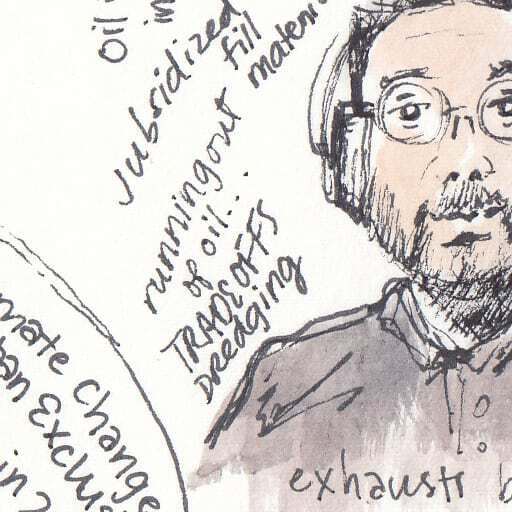 oil
in
Jubsidized
fill
materi
running out
of oil...
TRADEOFFS
Dredging
mate change
an exclu
in 2
exhausti b